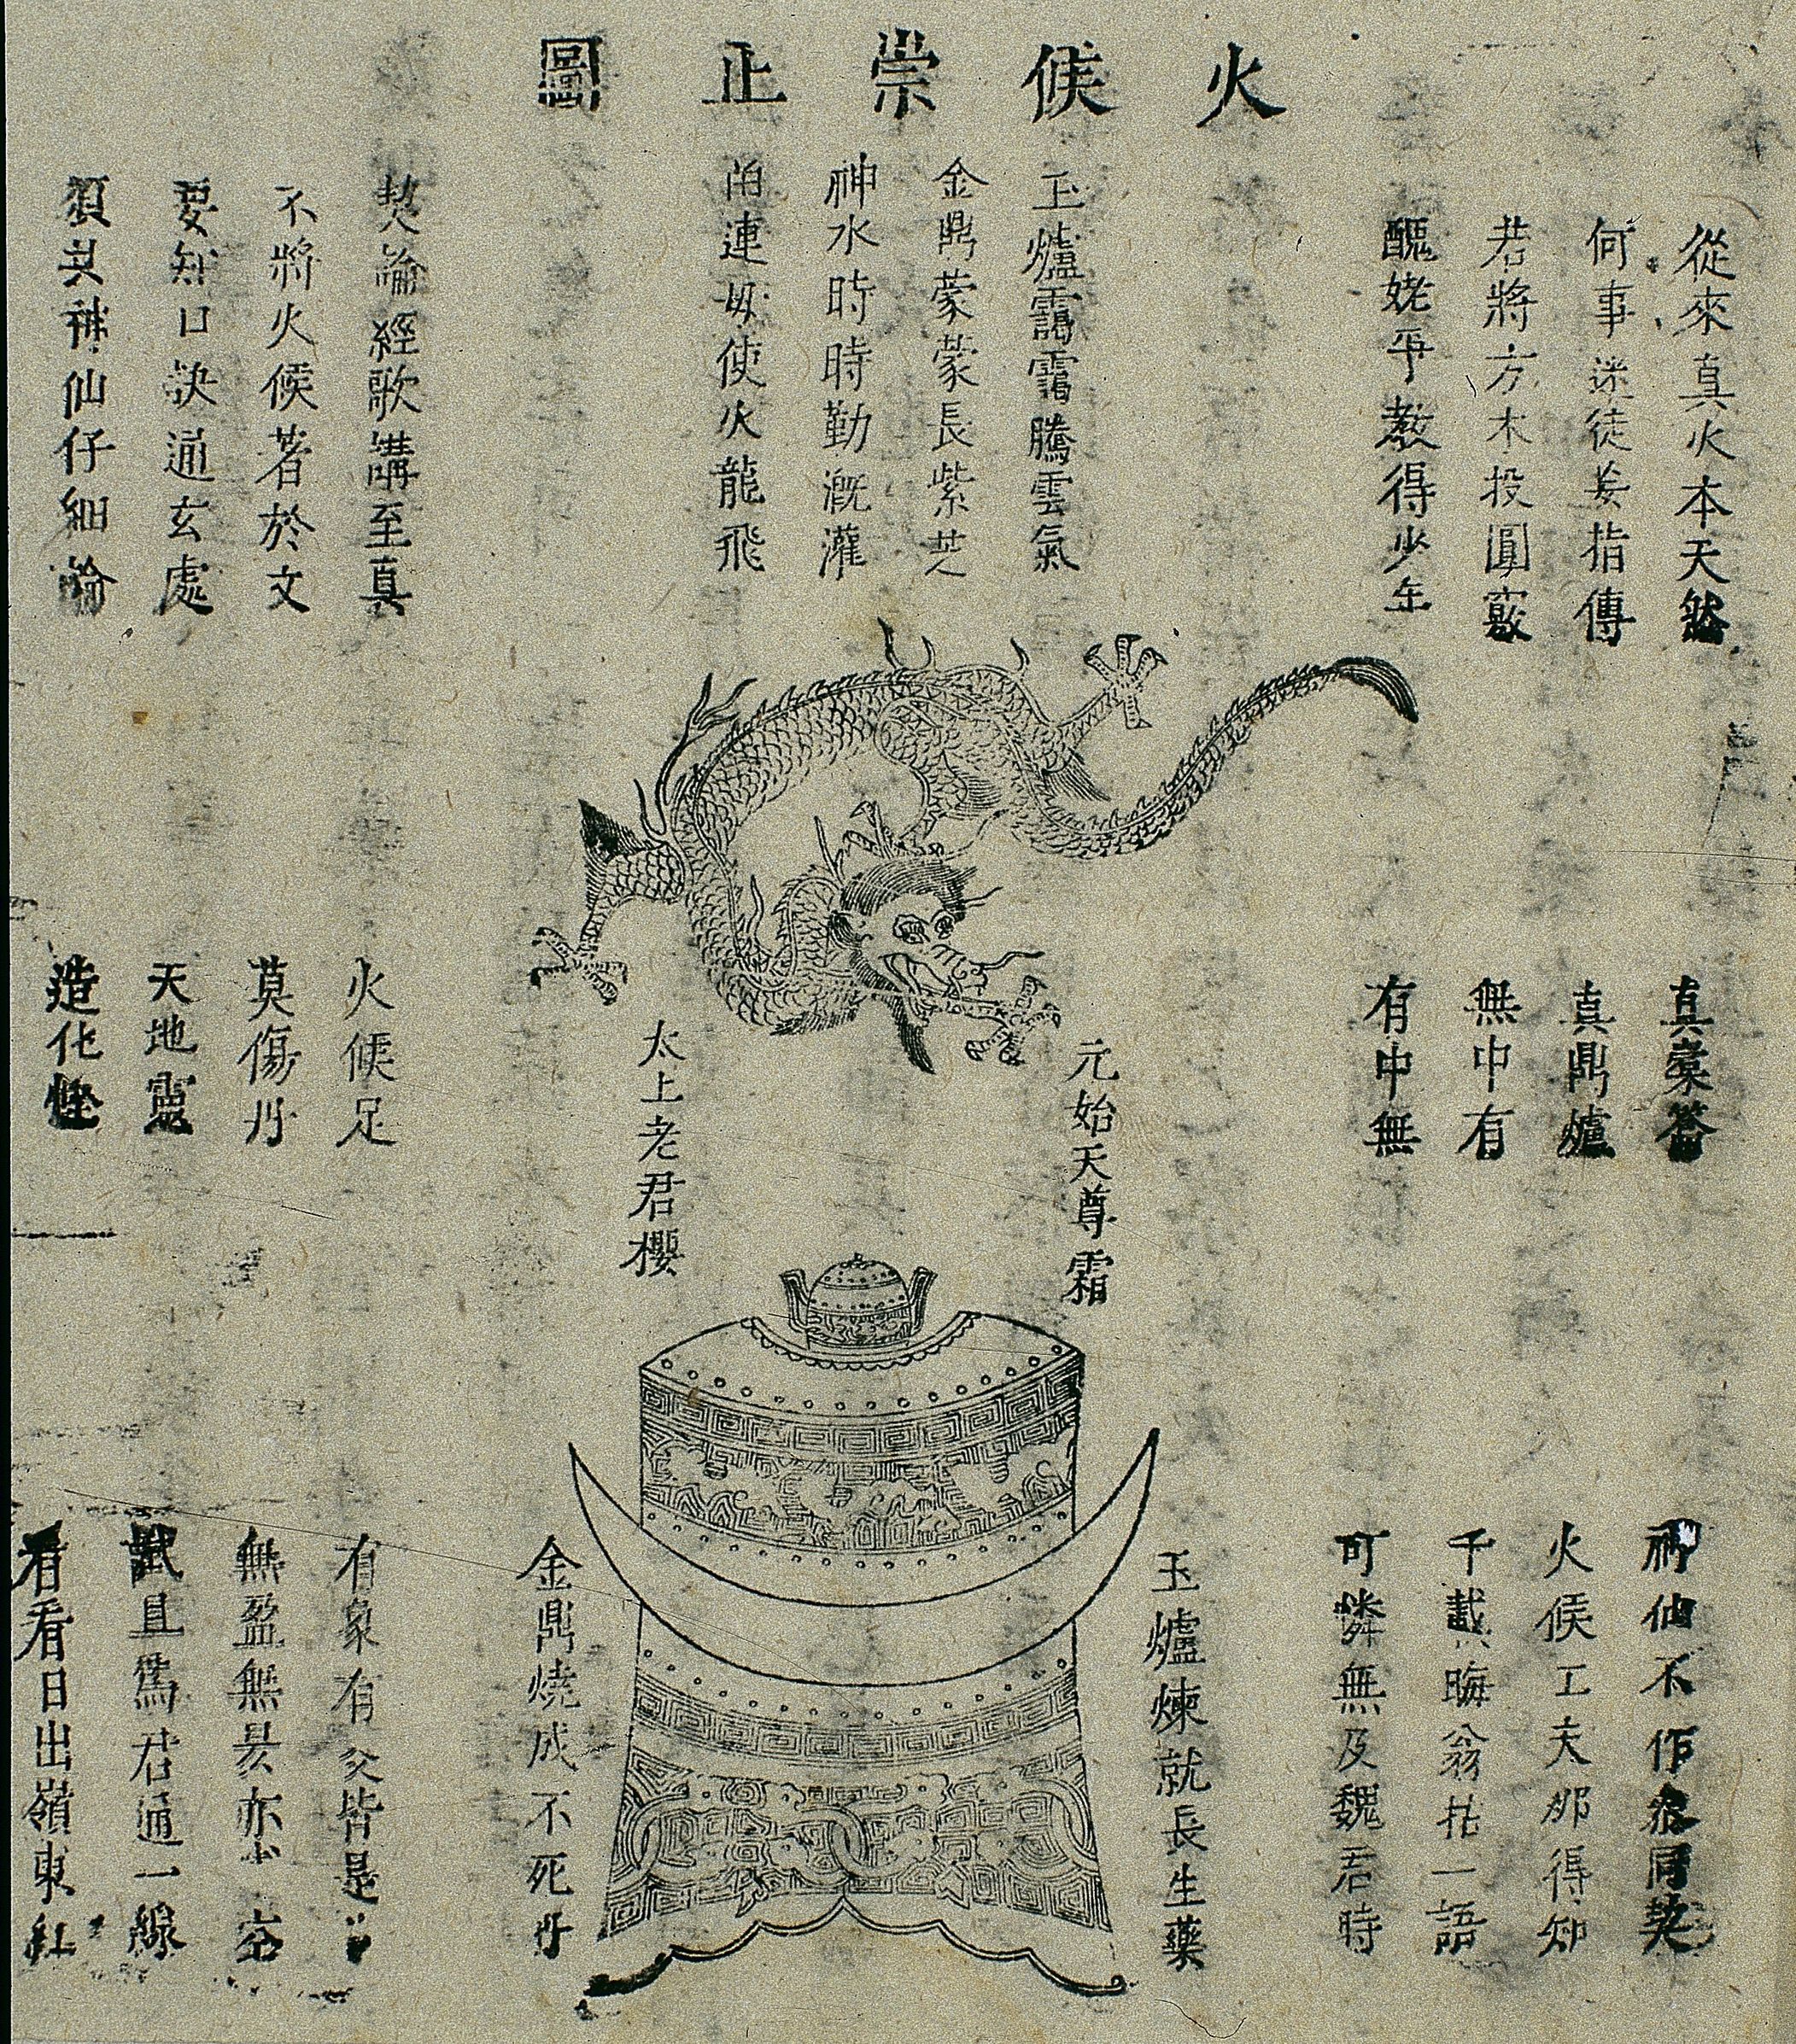 火候崇止圖
從來真火本天然
何事迷徒妄指傳
若將方木投圓竅
醜姥乎教得少年
玉爐靄靄騰雲氣
金鼎蒙蒙長紫芝
神水時時勤溉灌
留連毋使火龍飛
契論經歌講至真
不將火候著於文
要知口訣通玄處
須共神仙仔細論
真橐籥
真鼎爐
無中有
有中無
元始天尊霜
太上老君櫻
火候足
莫傷丹
天地靈
造化慳
神仙不作參同契
火候工夫那得知
千載晦翁拈一語
可憐無及魏君時
玉爐煉就長生藥
金鼎燒成不死丹
有象有爻皆是
無盈無昃亦
試且為君通一線
看看日出嶺東紅